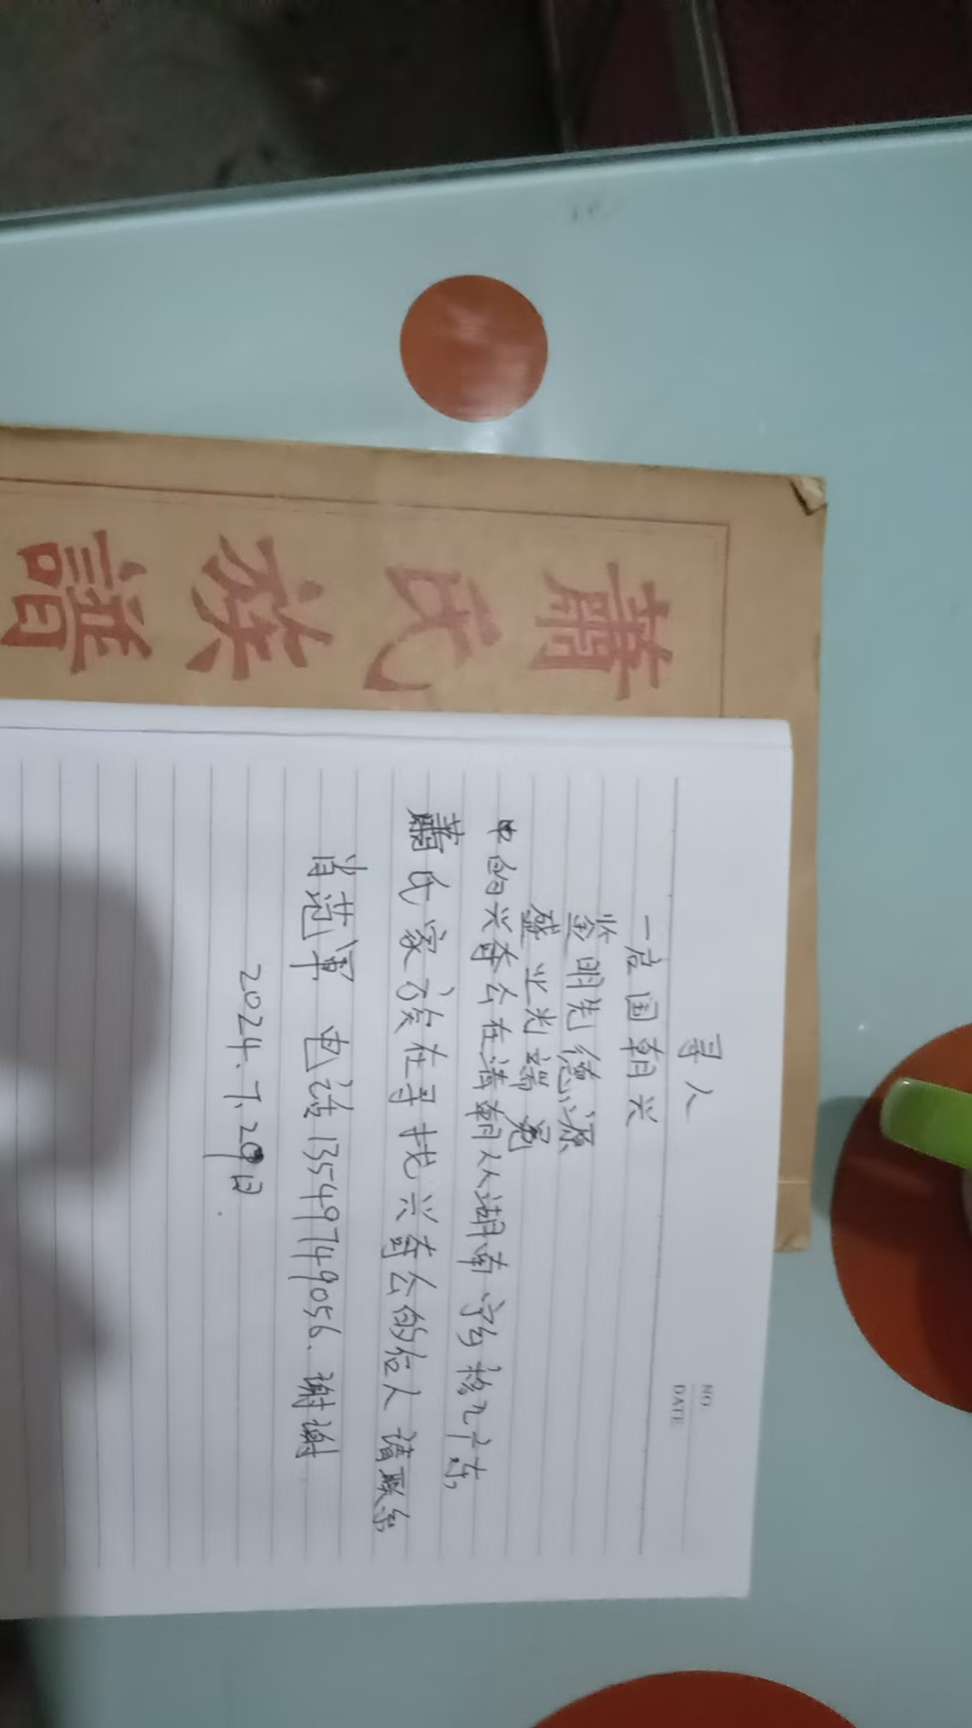 蕭氏族譜
NO
DATE
寻人
一启国朝兴
鉴明先德源
盛业光端冕
中的兴奇公在清朝从湖南宁乡移
蕭氏家族在寻找兴奇公的后人请联系
肖范军 电话13549749056.谢谢
2024.7.29日